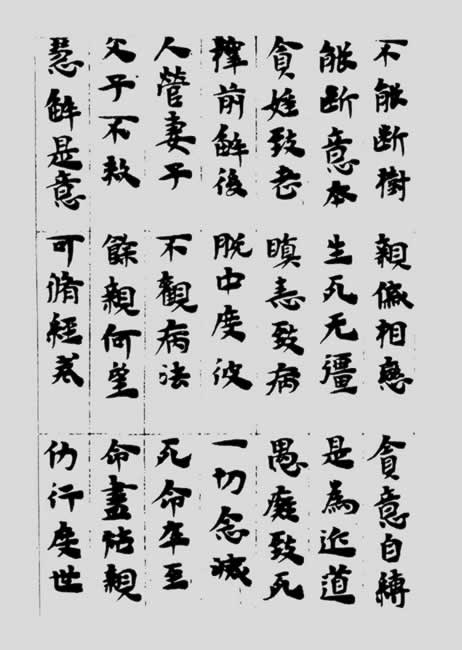 不能斷樹 親戚相戀 貪意自縛
能斷意本 生死无彊 是為近道
貪婬致老 瞋恚致病 愚癡致死
釋前解後 脫中度彼 一切念滅
人營妻子 不觀病法 死命卒至
父子不救 餘親何望 命盡怙親
慧解是意 可脩經戒 仂行度世